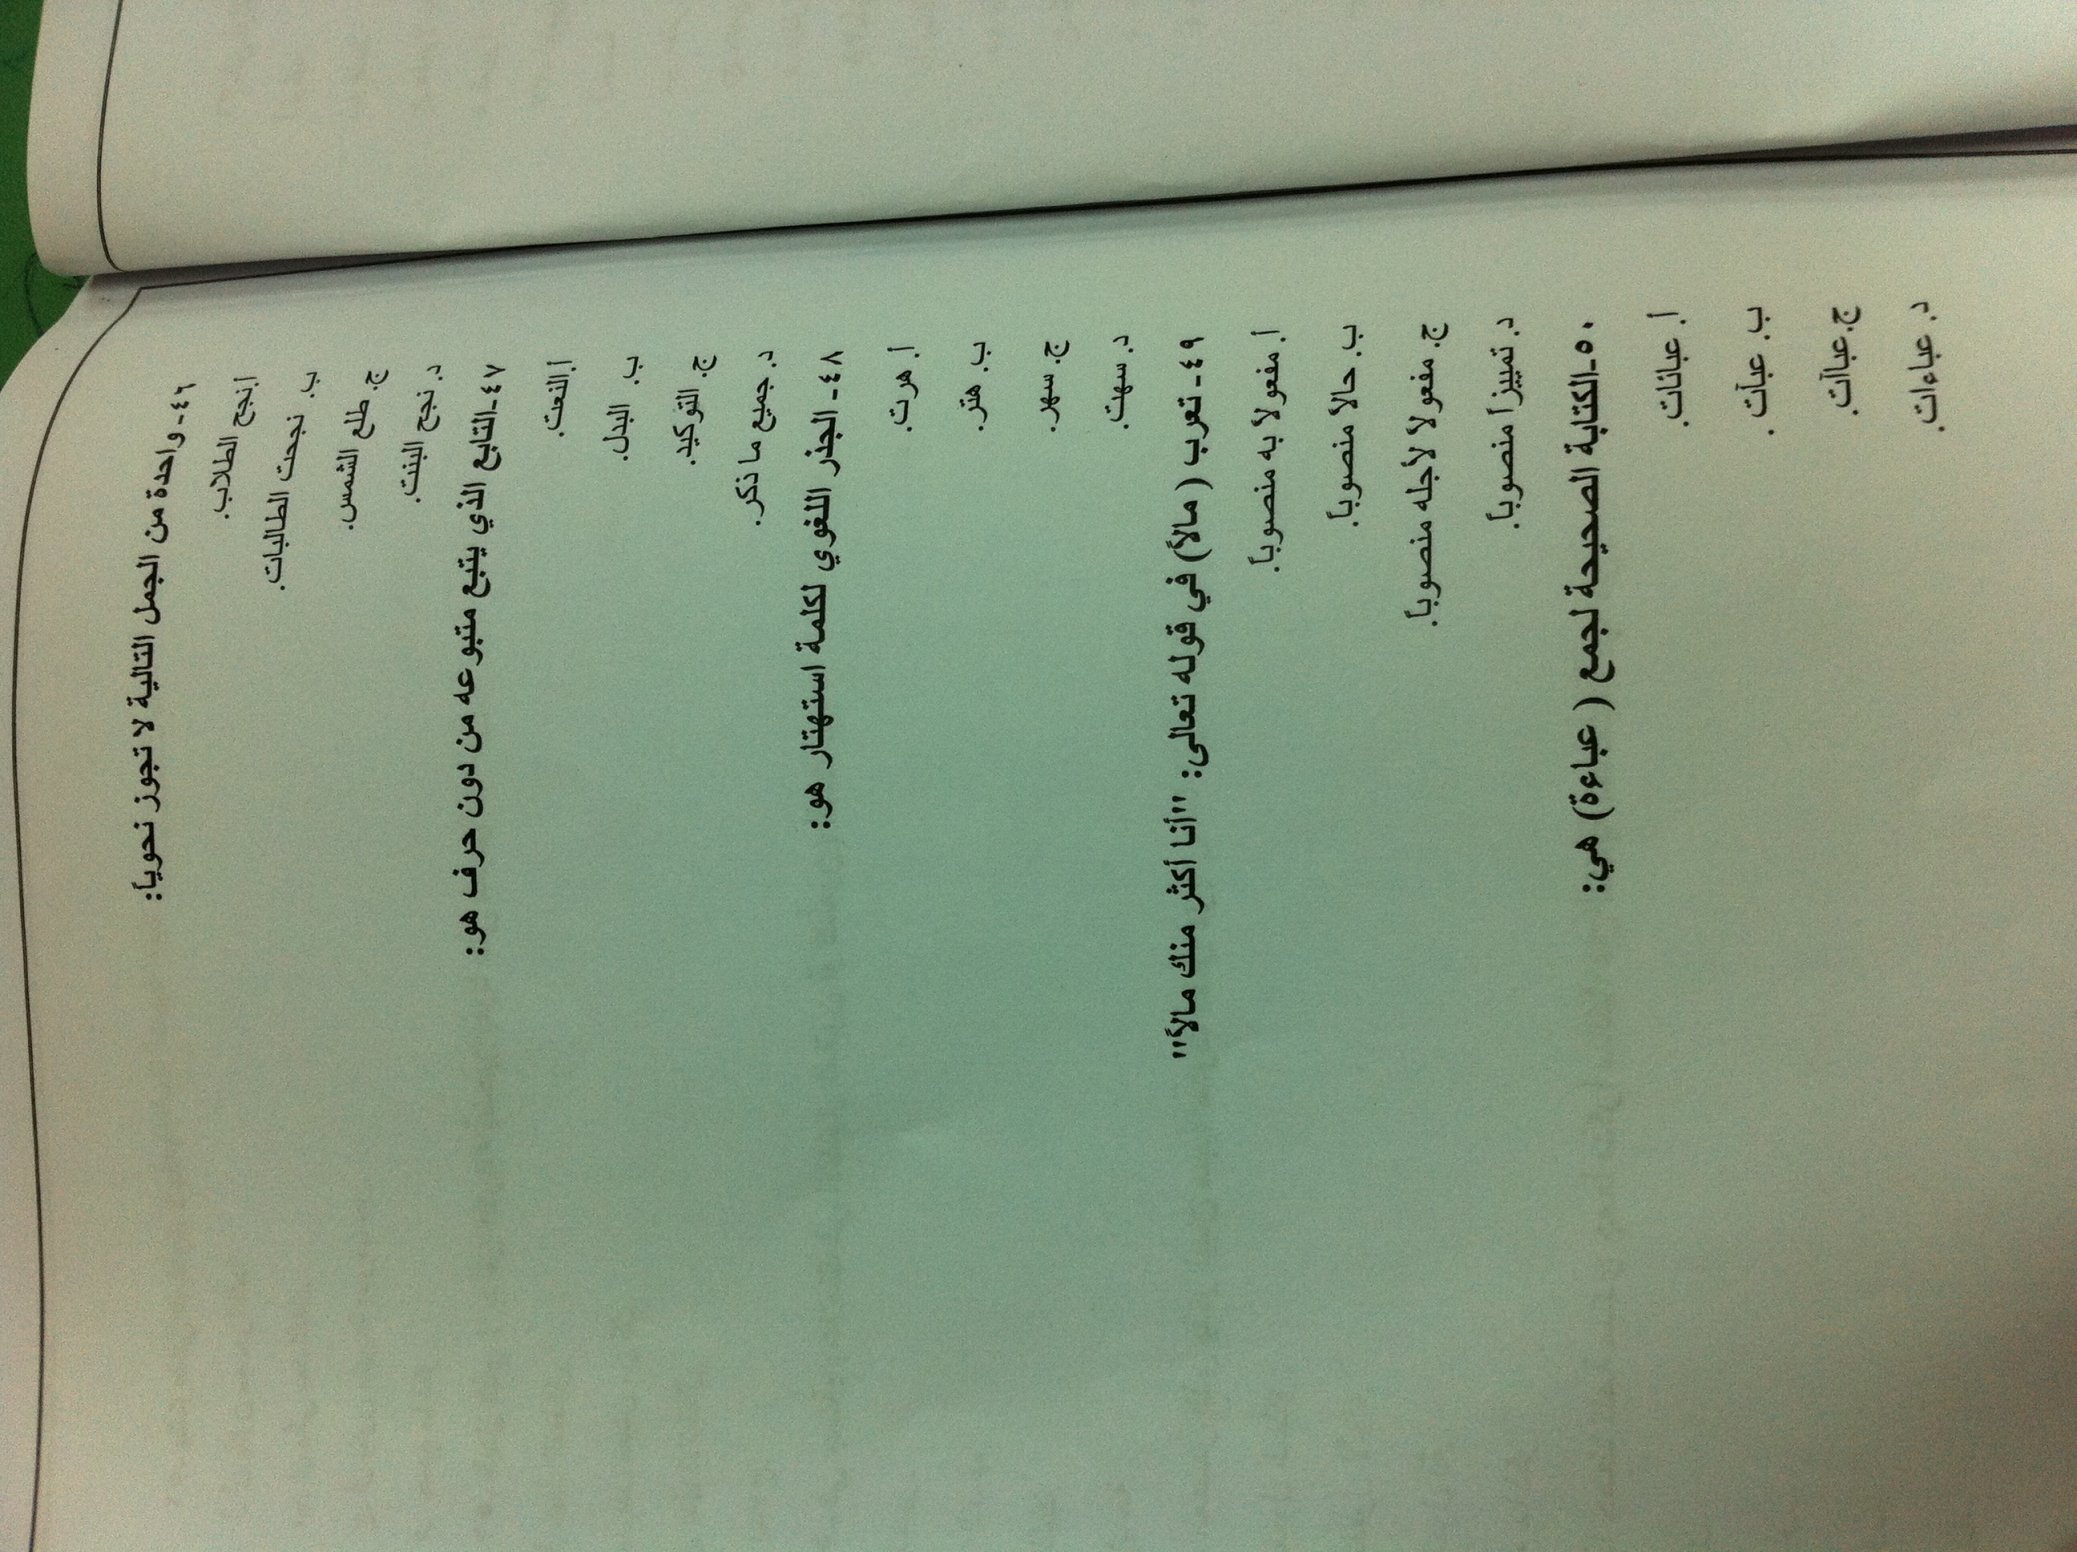 ٤٦- واحدة من الجمل التالية لا تجوز نحوياً:
أ.نجح الطلاب.
ب. نجحت الطالبات.
ج. طلع الشمس.
د. نجح البنت.
٤٧-التابع الذي يتبع متبوعه من دون حرف هو:
أ.النعت.
ب. البدل.
ج. التوكيد.
د. جميع ما ذكر.
٤٨- الجذر اللغوي لكلمة استهتار هو:
أ. هرت.
ب. هتر.
ج. سهر.
د. سهت.
٤٩- تعرب ( مالاً) في قوله تعالى: "أنا أكثر منك مالاً"
أ. مفعولاً به منصوباً.
ب. حالاً منصوباً.
ج. مفعولاً لأجله منصوباً.
د. تمييزاً منصوباً.
٥٠-الكتابة الصحيحة لجمع ( عباءة) هي:
أ. عبائات.
ب. عبآت .
ج. عباآت.
د. عباءات.